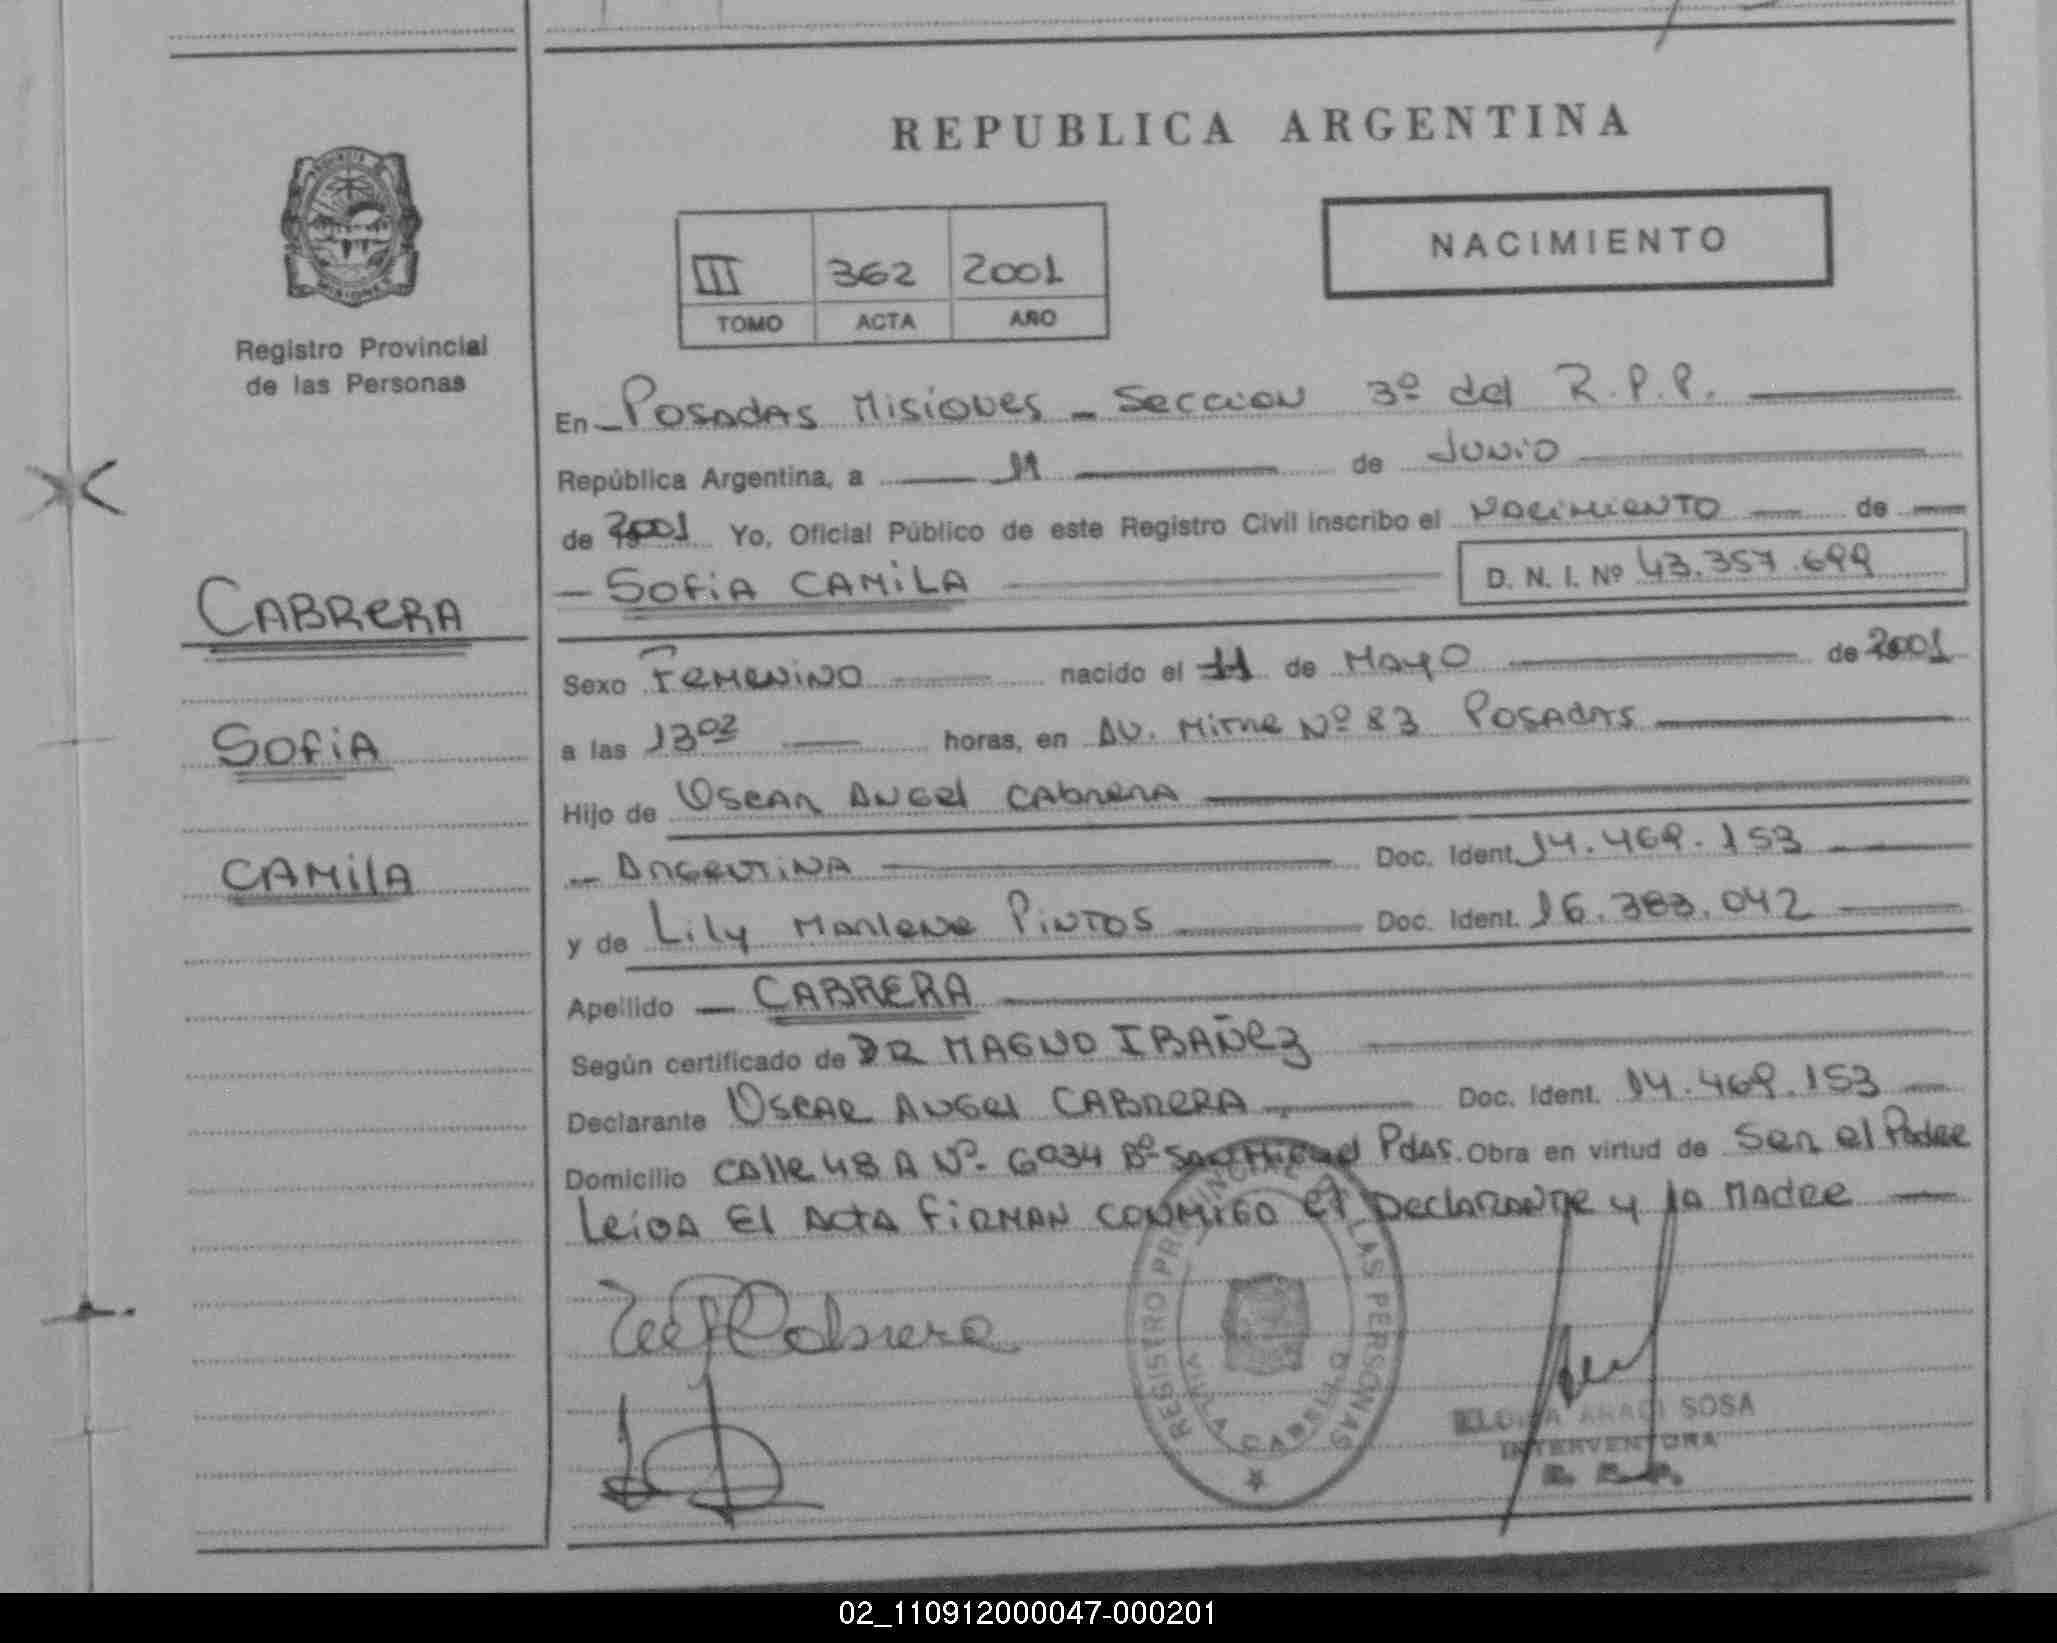 REPUBLICA ARGENTINA
NACIMIENTO
III 362 2001
TOMO ACTA AÑO
Registro Provincial
de las Personas
CABRERA
SOFIA
CAMILA
En Posadas Misiones - Seccion 3º del R.P.P.
República Argentina, a 11 de Junio
de 2001 Yo, Oficial Público de este Registro Civil inscribo el Nacimiento de
SOFIA CAMILA D. N. I. Nº 43.357.699
Sexo Femenino nacido el 11 de Mayo de 2001
a las 13 horas, en AV. Mitre Nº 83 Posadas
Hijo de Oscar Angel Cabrera
Argentina Doc. Ident. 14.469.153
y de Lily Marlene Pintos Doc. Ident. 16.383.042
Apellido CABRERA
Según certificado de DR MAGNO IBAÑEZ
Declarante Oscar Angel CABRERA Doc. Ident. 14.469.153
Domicilio Calle 48 A Nº 6034 Bº San Miguel Pdas. Obra en virtud de Ser el Padre
Leida El Acta Firman conmigo El Declarante y la Madre
Cabrera
REGISTRO PROVINCIAL DE LAS PERSONAS
VILLA CABELLO
ARACI SOSA
INTERVENTORA
02_110912000047-000201